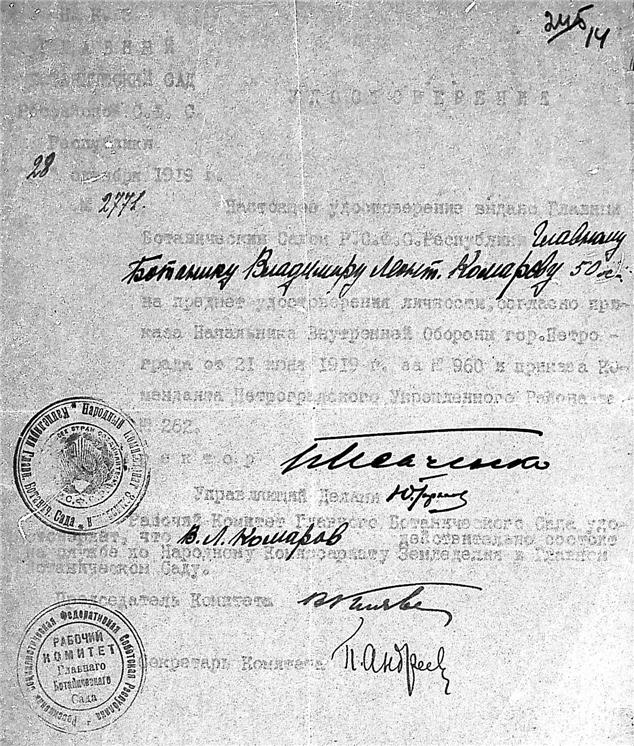 2115/14
ГЛАВНЫЙ
БОТАНИЧЕСКИЙ САД
Российской С.Ф.С.
Республики.
УДОСТОВЕРЕНИЕ
28 октября 1919 г.
№ 2771.
Настоящее удостоверение выдано Главным
Ботаническим Садом Р.С.Ф.С.Республики Главному
Ботанику Владимиру Леонт. Комарову 50 л.
на предмет удостоверения личности, согласно при-
каза Начальника Внутренней Обороны гор.Петро-
града от 21 июня 1919 г. за № 960 и приказа Ко-
менданта Петроградского Укрепленного Района за
№ 262.
Управляющий Делами
Рабочий Комитет Главного Ботанического Сада удо-
стоверяет, что В.Л.Комаров действительно состоит
на службе по Народному Комиссариату Земледелия в Главном
Ботаническом Саду.
Председатель Комитета
Секретарь Комитета П.Андреев
Народный Комиссариат
Канцелярия Главн. Ботанич. Сада
Российская Социалистическая Федеративная Советская Республика
РАБОЧИЙ
КОМИТЕТ
Главного
Ботанического
Сада